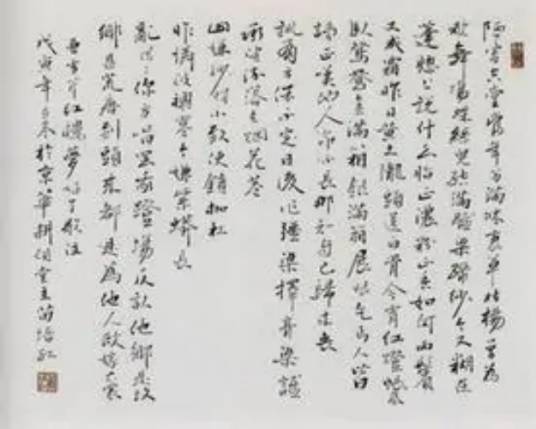 陋室空堂當年笏滿床衰草枯楊曾為
歌舞場蛛絲兒結滿雕梁綠紗今又糊在
蓬窗上說什么脂正濃粉正香如何兩鬢
又成霜昨日黃土隴頭送白骨今宵紅燈帳底
臥鴛鴦金滿箱銀滿箱展眼乞丐人皆
謗正嘆他人命不長那知自己歸來喪
訓有方保不定日後作強梁擇膏粱誰
承望流落在烟花巷
因嫌紗帽小致使鎖枷扛
昨憐破襖寒今嫌紫蟒長
亂烘烘你方唱罷我登場反認他鄉是故
鄉甚荒唐到頭來都是為他人做嫁衣裳
曹雪芹紅樓夢好了歌注
戊寅年於京華耕